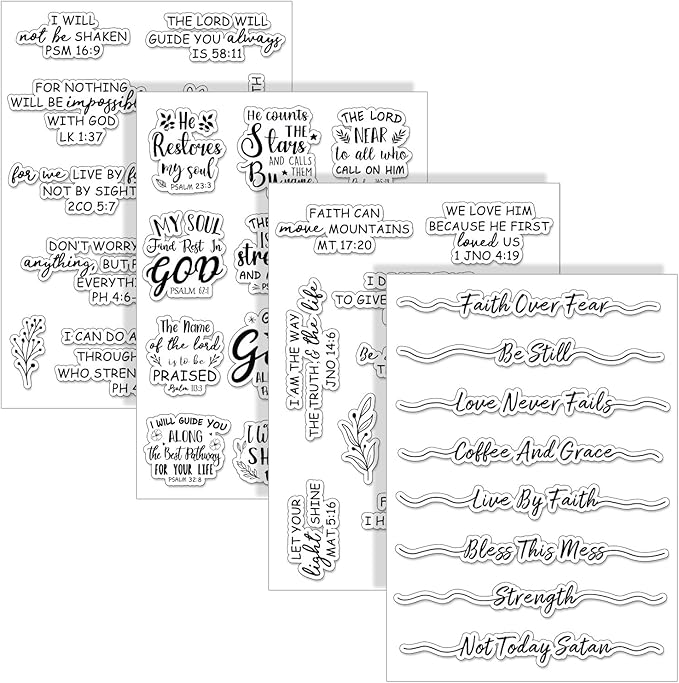 I WILL
not be SHAKEN
PSM 16:9
THE LORD WILL
GUIDE YOU always
IS 58:11
FOR NOTHING
WILL BE impossible
WITH GOD
LK 1:37
for we LIVE BY
NOT BY SIGHT
2CO 5:7
DON'T WORRY
anything, BUT
EVERYTHI
PH 4:6-
I CAN DO A
THROUGH
WHO STREN
PH 4
He
Restores
my soul
PSALM 23:3
He counts
THE
Stars
AND CALLS
THEM
By name
THE LORD
NEAR
to all who
CALL ON HIM
MY SOUL
Find Rest In
GOD
PSALM 62:1
THE
IS
stre
AND M
The Name
of the lord
is to be
PRAISED
Psalm 113:3
I WILL GUIDE YOU
ALONG
the Best Pathway
FOR YOUR LIFE
PSALM 32:8
I W
SH
FAITH CAN
move MOUNTAINS
MT 17:20
WE LOVE HIM
BECAUSE HE FIRST
loved US
1 JNO 4:19
I AM THE WAY
THE TRUTH & the life
JNO 14:6
TO GIVE
LET YOUR
light SHINE
MAT 5:16
Faith Over Fear
Be Still
Love Never Fails
Coffee And Grace
Live By Faith
Bless This Mess
Strength
Not Today Satan